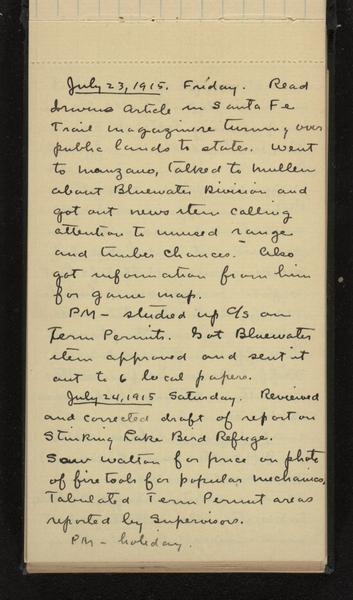 July 23, 1915. Friday. Read
Irwins Article in Santa Fe
Trail magazine re turning over
public lands to states. Went
to Manzano, talked to Mullen
about Bluewater Division and
got out news item calling
attention to unused range
and timber chances. Also
got information from him
for game map.
PM - studied up C/S on
Term Permits. Got Bluewater
item approved and sent it
out to 6 local papers.
July 24, 1915 Saturday. Reviewed
and corrected draft of report on
Stinking Lake Bird Refuge.
Saw Walton for price on photo
of fire tools for popular mechanics.
Tabulated Term Permit areas
reported by Supervisors.
PM - holiday.